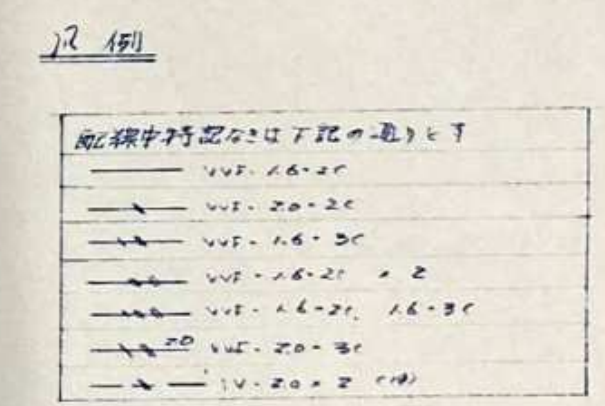 凡例
配線中特記なきは下記の通りとす
VVF-1.6-2C
VVF-2.0-2C
VVF-1.6-3C
VVF-1.6-2C × 2
VVF-1.6-2C, 1.6-3C
2.0 VVF-2.0-3C
IV-2.0×2